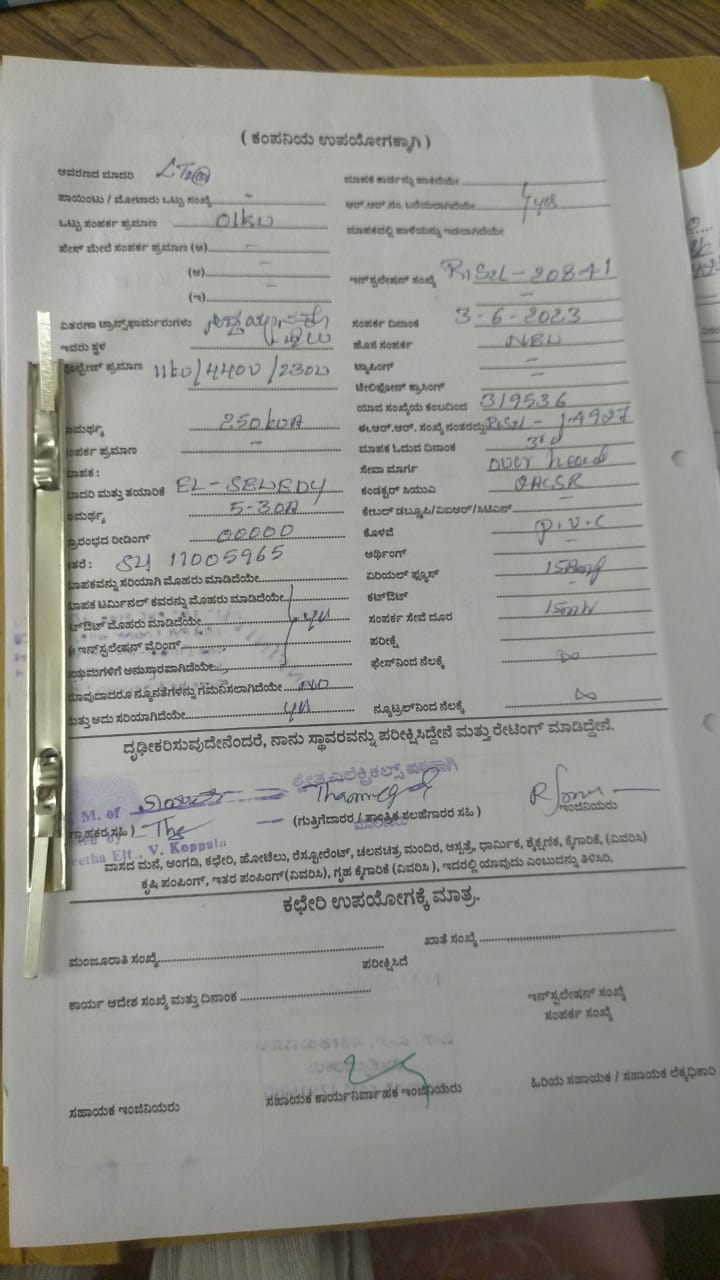 ( ಕಂಪನಿಯ ಉಪಯೋಗಕ್ಕಾಗಿ )
ಆವರಣದ ಮಾದರಿ
ಮಾಪಕ ಕಾರ್ಡನ್ನು ಹಾಕಿದೆಯೇ
ಪಾಯಿಂಟು / ಮೋಟಾರು ಒಟ್ಟು ಸಂಖ್ಯೆ -
ಆರ್.ಆರ್.ನಂ. ಬರೆಯಲಾಗಿದೆಯೇ yes
ಒಟ್ಟು ಸಂಪರ್ಕ ಪ್ರಮಾಣ 01KW
ಮಾಪಕದಲ್ಲಿ ಹಾಳೆಯನ್ನು ಇಡಲಾಗಿದೆಯೇ
ಫೇಸ್ ಮೇಲೆ ಸಂಪರ್ಕ ಪ್ರಮಾಣ (ಅ) -
(ಆ) -
ಇನ್‌ಸ್ಟಲೇಷನ್ ಸಂಖ್ಯೆ RJS2L-20841
(ಇ) -
ವಿತರಣಾ ಟ್ರಾನ್ಸ್‌ಫಾರ್ಮರುಗಳು
ಸಂಪರ್ಕ ದಿನಾಂಕ 3-6-2023
ಇದರು ಸ್ಥಳ
ಹೊಸ ಸಂಪರ್ಕ NEW
ವೋಲ್ಟೇಜ್ ಪ್ರಮಾಣ 11KV/440V/230V
ಟ್ಯಾಪಿಂಗ್ -
ಟೆಲಿಫೋನ್ ಕ್ರಾಸಿಂಗ್ -
ಯಾವ ಸಂಖ್ಯೆಯ ಕಂಬದಿಂದ 319536
ಸಾಮರ್ಥ್ಯ 250KVA
ಈ.ಆರ್.ಆರ್. ಸಂಖ್ಯೆ ನಂತರದ್ದು RJS2L-14927
ಸಂಪರ್ಕ ಪ್ರಮಾಣ -
ಮಾಪಕ ಓದುವ ದಿನಾಂಕ 3rd
ಮಾಪಕ :
ಸೇವಾ ಮಾರ್ಗ over head
ಮಾದರಿ ಮತ್ತು ತಯಾರಿಕೆ EL-SEWEDY
ಕಂಡಕ್ಟರ್ ಸಿಯುವಿ
ಸಾಮರ್ಥ್ಯ 5-30A
ಕೇಬಲ್ ಡಬ್ಲೂಪಿ/ವಿಐಆರ್/ಸಿಟಿಎಸ್ -
ಪ್ರಾರಂಭದ ರೀಡಿಂಗ್ 00000
ಕೊಳವೆ P.V.C
ಇತರೆ : SH 17005965
ಅರ್ಥಿಂಗ್
ಮಾಪಕವನ್ನು ಸರಿಯಾಗಿ ಮೊಹರು ಮಾಡಿದೆಯೇ
ಏರಿಯಲ್ ಫ್ಯೂಸ್ 15Amp
ಮಾಪಕ ಟರ್ಮಿನಲ್ ಕವರನ್ನು ಮೊಹರು ಮಾಡಿದೆಯೇ
ಕಟ್‌ಔಟ್ -
ಕಟ್‌ಔಟ್ ಮೊಹರು ಮಾಡಿದೆಯೇ yes
ಸಂಪರ್ಕ ಸೇವೆ ದೂರ
ಇನ್‌ಸ್ಟಲೇಷನ್ ವೈರಿಂಗ್
ಪರೀಕ್ಷೆ
ನಿಯಮಗಳಿಗೆ ಅನುಸಾರವಾಗಿದೆಯೇ
ಫೇಸ್‌ನಿಂದ ನೆಲಕ್ಕೆ ∞
ಯಾವುದಾದರೂ ನ್ಯೂನತೆಗಳನ್ನು ಗಮನಿಸಲಾಗಿದೆಯೇ NO
ಮತ್ತು ಅದು ಸರಿಯಾಗಿದೆಯೇ yes
ನ್ಯೂಟ್ರಲ್‌ನಿಂದ ನೆಲಕ್ಕೆ ∞
ದೃಢೀಕರಿಸುವುದೇನೆಂದರೆ, ನಾನು ಸ್ಥಾವರವನ್ನು ಪರೀಕ್ಷಿಸಿದ್ದೇನೆ ಮತ್ತು ರೇಟಿಂಗ್ ಮಾಡಿದ್ದೇನೆ.
ಎಲೆಕ್ಟ್ರಿಕಲ್ಸ್ ಪರವಾಗಿ
M. of
(ಗ್ರಾಹಕರ ಸಹಿ) (ಗುತ್ತಿಗೆದಾರರ / ತಾಂತ್ರಿಕ ಸಲಹೆಗಾರರ ಸಹಿ) ಇಂಜಿನಿಯರು
Elt., V. Koppalu
ವಾಸದ ಮನೆ, ಅಂಗಡಿ, ಕಛೇರಿ, ಹೋಟೆಲು, ರೆಸ್ಟೋರೆಂಟ್, ಚಲನಚಿತ್ರ ಮಂದಿರ, ಆಸ್ಪತ್ರೆ, ಧಾರ್ಮಿಕ, ಶೈಕ್ಷಣಿಕ, ಕೈಗಾರಿಕೆ, (ವಿವರಿಸಿ)
ಕೃಷಿ ಪಂಪಿಂಗ್, ಇತರ ಪಂಪಿಂಗ್(ವಿವರಿಸಿ), ಗೃಹ ಕೈಗಾರಿಕೆ (ವಿವರಿಸಿ ), ಇದರಲ್ಲಿ ಯಾವುದು ಎಂಬುದನ್ನು ತಿಳಿಸಿರಿ.
ಕಛೇರಿ ಉಪಯೋಗಕ್ಕೆ ಮಾತ್ರ.
ಮಂಜೂರಾತಿ ಸಂಖ್ಯೆ
ಖಾತೆ ಸಂಖ್ಯೆ
ಪರೀಕ್ಷಿಸಿದೆ
ಕಾರ್ಯ ಆದೇಶ ಸಂಖ್ಯೆ ಮತ್ತು ದಿನಾಂಕ
ಇನ್‌ಸ್ಟಲೇಷನ್ ಸಂಖ್ಯೆ
ಸಂಪರ್ಕ ಸಂಖ್ಯೆ
ಸಹಾಯಕ ಇಂಜಿನಿಯರು
ಸಹಾಯಕ ಕಾರ್ಯನಿರ್ವಾಹಕ ಇಂಜಿನಿಯರು
ಹಿರಿಯ ಸಹಾಯಕ / ಸಹಾಯಕ ಲೆಕ್ಕಧಿಕಾರಿ